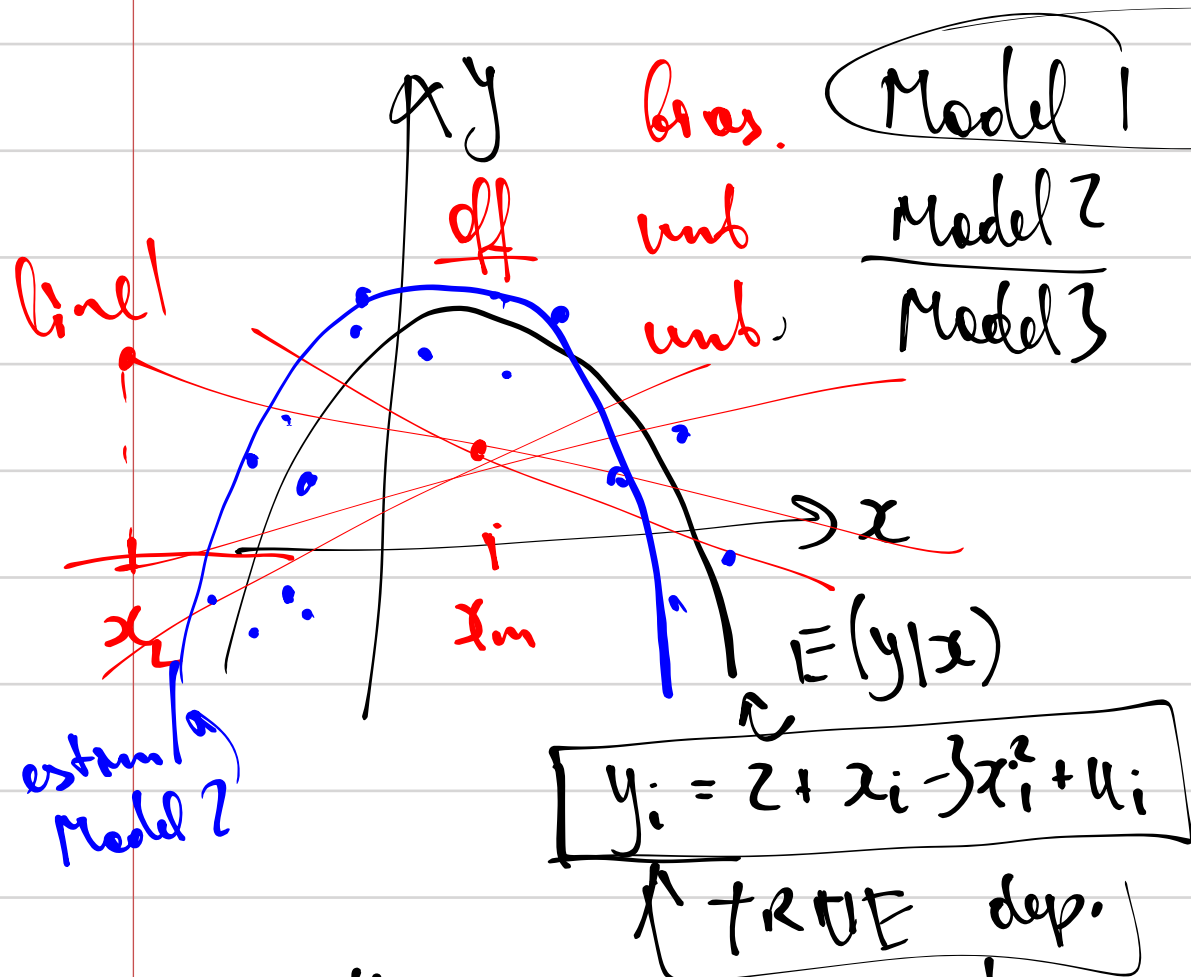 y
bias. Model 1
eff
unb Model 2
line 1
unb. Model 3
x
x_L
x_m
E(y|x)
estim
Model 2
y_i = 2 + x_i - 3x_i^2 + u_i
TRUE dep.